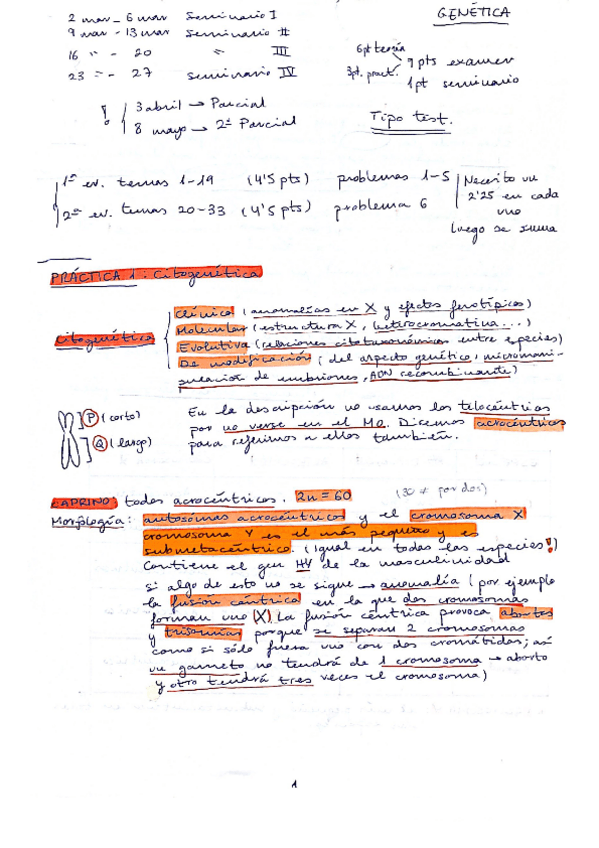 GENÉTICA
2 mar - 6 mar Seminario I
9 mar - 13 mar Seminario II
16 " - 20 " III
23 " - 27 seminario IV
6pt teoría
3pt. pract.
9 pts examen
1pt seminario
! 3 abril → Parcial
8 mayo → 2º Parcial
Tipo test.
1ª ev. temas 1-19 (4'5 pts) problemas 1-5
2ª ev. temas 20-33 (4'5 pts) problema 6
Necesito un
2'25 en cada
uno
luego se suma
PRÁCTICA 1: Citogenética
Citogenética
Clínica (anomalías en X y efectos fenotípicos)
Molecular (estructura X, heterocromatina...)
Evolutiva (relaciones citotaxonómicas entre especies)
De modificación (del aspecto genético, micromani-
pulación de embriones, ADN recombinante)
P (corto)
Q (largo)
En la descripción no usamos los telocéntricos
por no verse en el MO. Decimos acrocéntricos
para referirnos a ellos también.
CAPRINO: todos acrocéntricos. 2n = 60 (30 # por dos)
Morfología: autosomas acrocéntricos y el cromosoma X
cromosoma Y es el más pequeño y es
submetacéntrico. (Igual en todas las especies!)
Contiene el gen HV de la masculinidad
si algo de esto no se sigue → anomalía (por ejemplo
la fusión céntrica en la que dos cromosomas
forman uno (X). La fusión céntrica provoca abortos
y trisomías porque se separan 2 cromosomas
como si sólo fuera uno con dos cromátidas; así
un gameto no tendrá de 1 cromosoma → aborto
y otro tendrá tres veces el cromosoma)
1